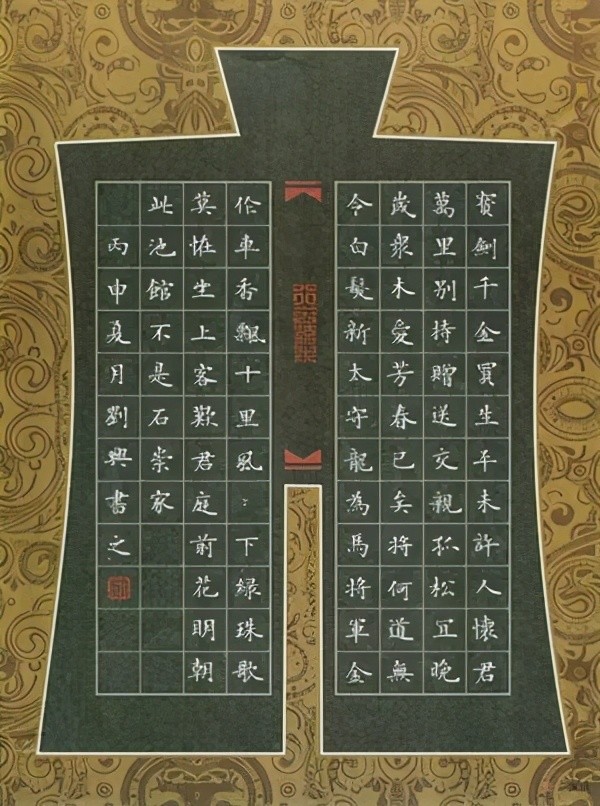 寶劍千金買生平未許人懷君
萬里別持贈送交親孤松冝晚
歲衆木愛芳春已矣將何道無
令白髮新太守龍為馬將軍金
作車香飄十里風〻下綠珠歌
莫恠坐上客歎君庭前花明朝
此池館不是石崇家
丙申夏月劉興書之